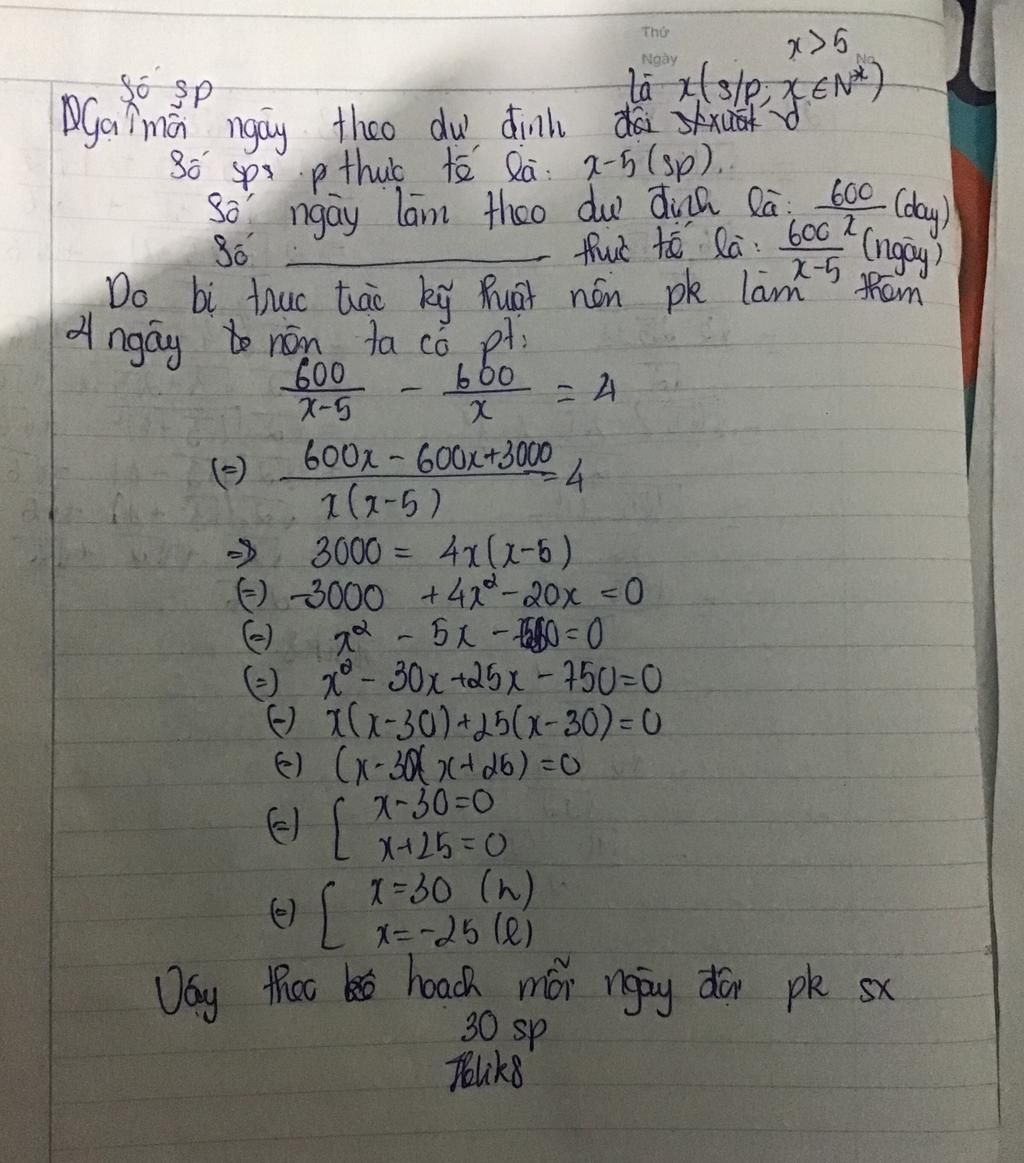 Thứ
Ngày
No
x > 5
số sp là x (s/p, x ∈ N*)
Gọi mỗi ngày theo dự định đội
Số sp thực tế là: x-5 (sp).
Số ngày làm theo dự định là: 600/x (day)
Số ———— thực tế là: 600/x-5 (ngày)
Do bị trục trặc kỹ thuật nên pk làm thêm
4 ngày nên ta có pt:
600/x-5 - 600/x = 4
(=) 600x - 600x+3000/x(x-5) = 4
=> 3000 = 4x(x-5)
(=) -3000 + 4x² - 20x = 0
(=) x² - 5x - 750 = 0
(=) x² - 30x + 25x - 750 = 0
(=) x(x-30)+25(x-30) = 0
(=) (x-30)(x+25) = 0
(=) [ x-30=0
x+25=0
(=) [ x=30 (n)
x=-25 (l)
Vậy theo kế hoạch mỗi ngày đội pk sx
30 sp